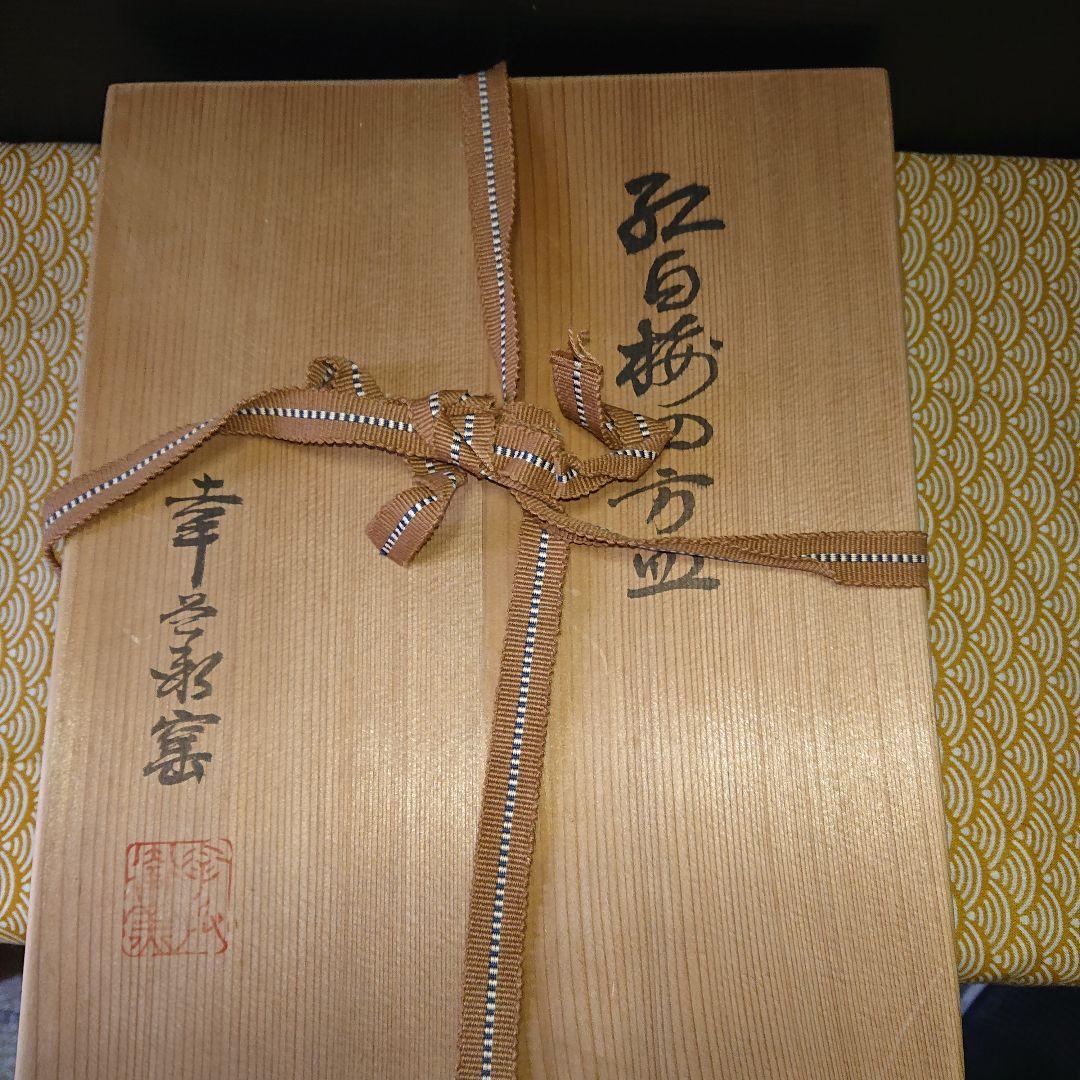 紅白梅の方皿
幸兵衛窯